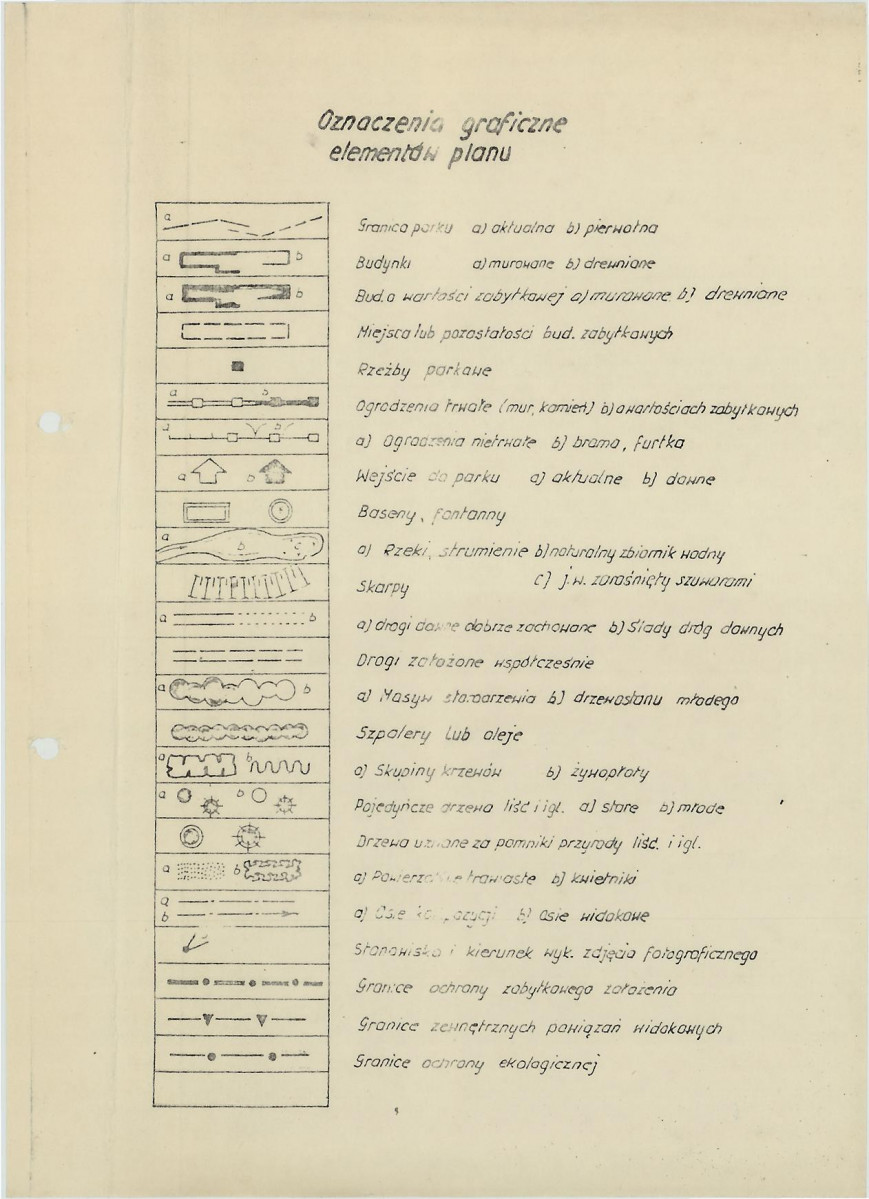 Oznaczenia graficzne
elementów planu
a Granica parku a) aktualna b) pierwotna
a b Budynki a) murowane b) drewniane
a b Bud. o wartości zabytkowej a) murowane b) drewniane
Miejsca lub pozostałości bud. zabytkowych
Rzeźby parkowe
a b Ogrodzenia trwałe (mur, kamień) b) o wartościach zabytkowych
a b a) Ogrodzenia nietrwałe b) brama, furtka
a b Wejście do parku a) aktualne b) dawne
Baseny, fontanny
a b a) Rzeki, strumienie b) naturalny zbiornik wodny
Skarpy c) j.w. zarośnięty szuwarami
a b a) drogi dawne dobrze zachowane b) Ślady dróg dawnych
Drogi założone współcześnie
a b a) Masyw starodrzewia b) drzewostanu młodego
Szpalery lub aleje
a b a) Skupiny krzewów b) żywopłoty
a b Pojedyńcze drzewa liść i igl. a) stare b) młode
Drzewa uznane za pomniki przyrody liść. i igl.
a b a) Powierzchnie trawiaste b) kwietniki
a
b a) Osie kompozycji b) Osie widokowe
Stanowiska i kierunek wyk. zdjęcia fotograficznego
Granice ochrony zabytkowego założenia
Granice zewnętrznych powiązań widokowych
Granice ochrony ekologicznej